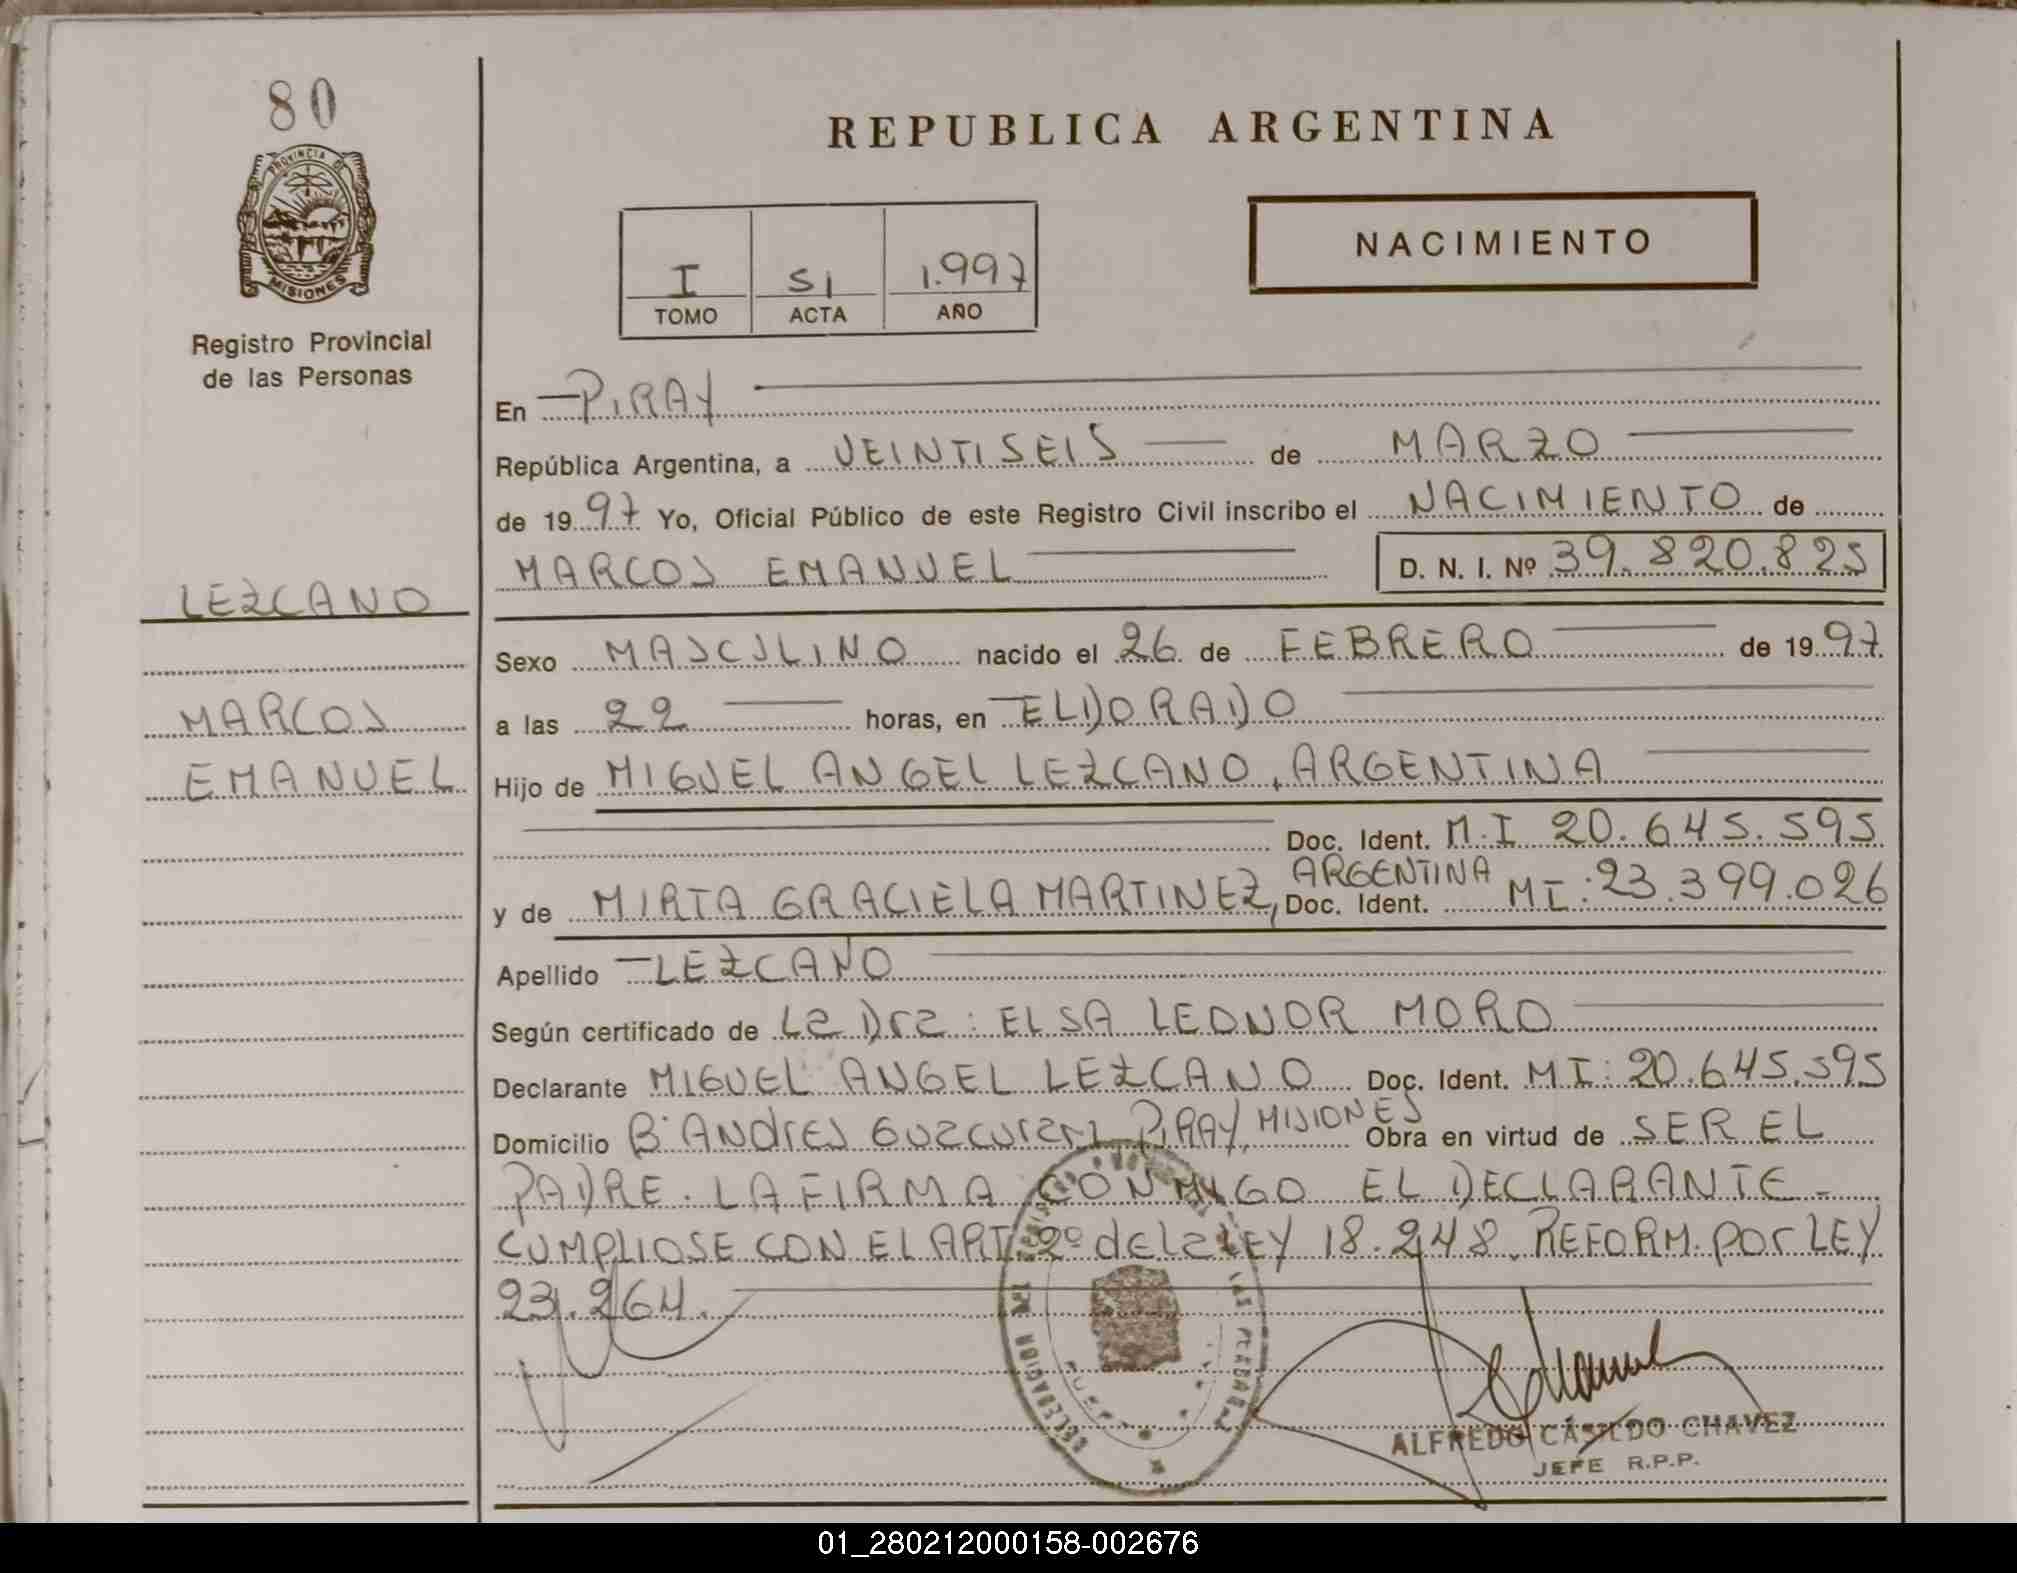 80
PROVINCIA DE
MISIONES
Registro Provincial
de las Personas
LEZCANO
MARCOS
EMANUEL
REPUBLICA ARGENTINA
I 51 1.997
TOMO ACTA AÑO
NACIMIENTO
En PIRAY
República Argentina, a VEINTISEIS de MARZO
de 1997 Yo, Oficial Público de este Registro Civil inscribo el NACIMIENTO de
MARCOS EMANUEL D. N. I. Nº 39.820.825
Sexo MASCULINO nacido el 26 de FEBRERO de 1997
a las 22 horas, en ELDORADO
Hijo de MIGUEL ANGEL LEZCANO, ARGENTINA
Doc. Ident. M.I 20.645.595
y de MIRTA GRACIELA MARTINEZ, ARGENTINA Doc. Ident. MI: 23.399.026
Apellido LEZCANO
Según certificado de La Dra: ELSA LEONOR MORO
Declarante MIGUEL ANGEL LEZCANO Doc. Ident. MI: 20.645.595
Domicilio Bº ANdres GUacurari PIRAY, MISIONES Obra en virtud de SER EL
PADRE. LA FIRMA CONMIGO EL DECLARANTE -
CUMPLIOSE CON EL ART. 2º de la LEY 18.248. REFORM. por LEY
23.264.
ALFREDO CASILDO CHAVEZ
JEFE R.P.P.
01_280212000158-002676